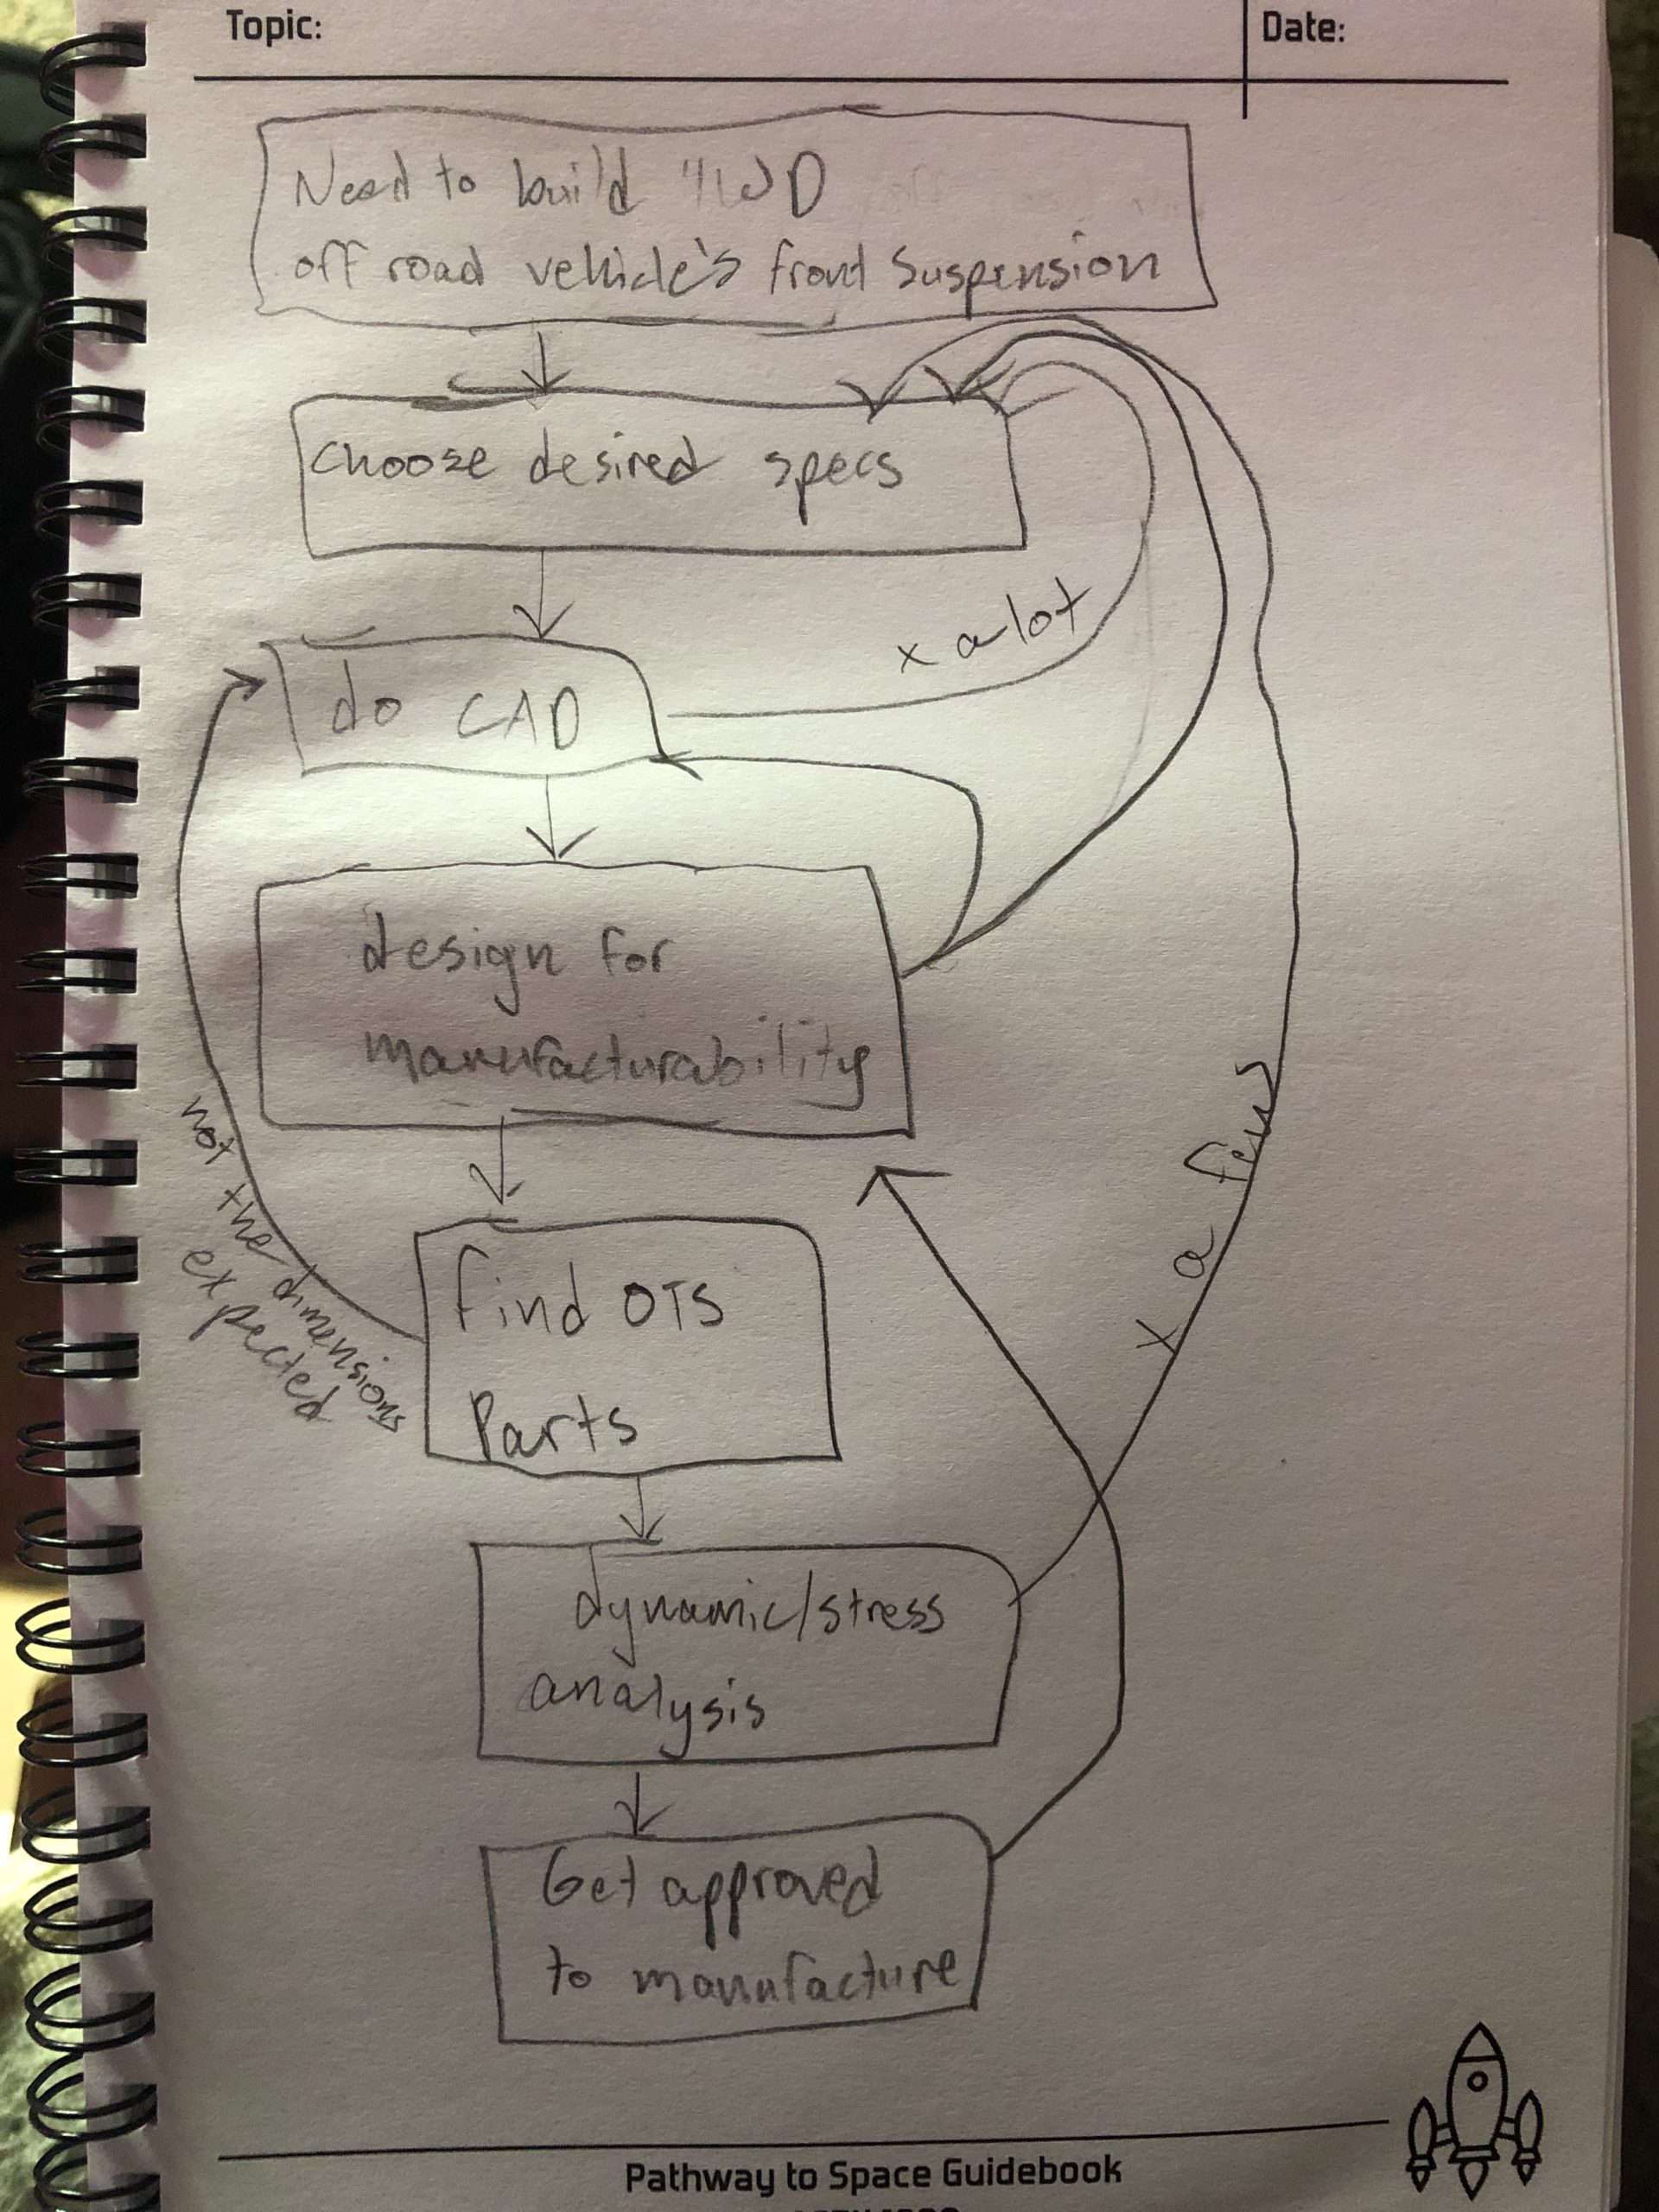 Topic:
Date:
Need to build 4WD
off road vehicle's front suspension
choose desired specs
x a lot
do CAD
design for
manufacturability
not the dimensions
expected
x a few
find OTS
Parts
dynamic/stress
analysis
Get approved
to manufacture
Pathway to Space Guidebook